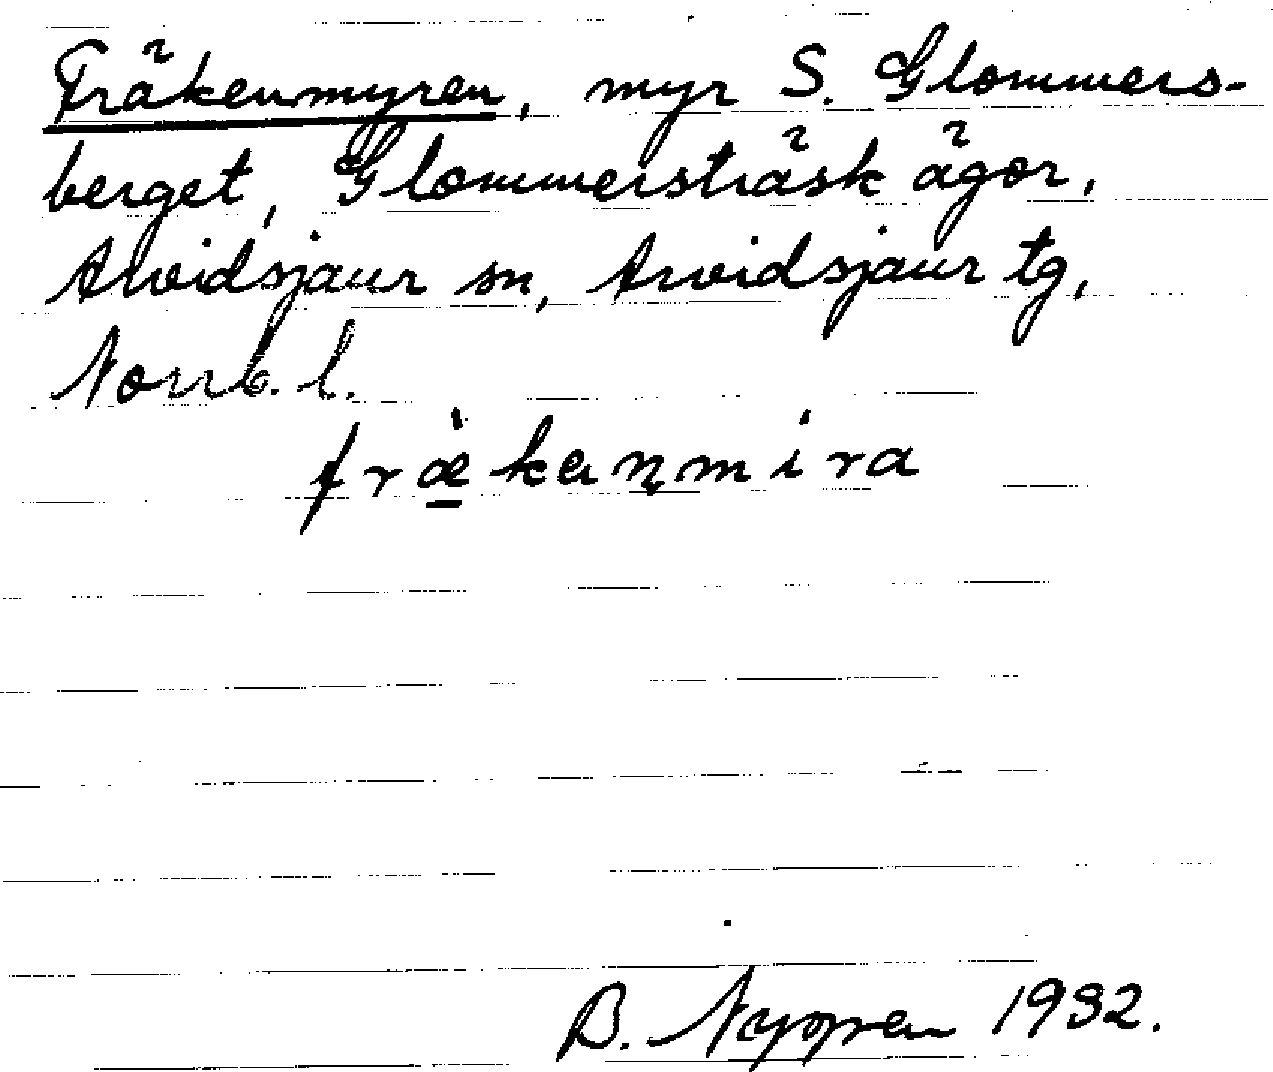 Fräkenmyren, myr S. Glommers-
berget, Glommersträsk ägor,
Arvidsjaur sn, Arvidsjaur tg,
Norrb. l.
fræ̱̀kaṇmìra
B. Nygren 1932.